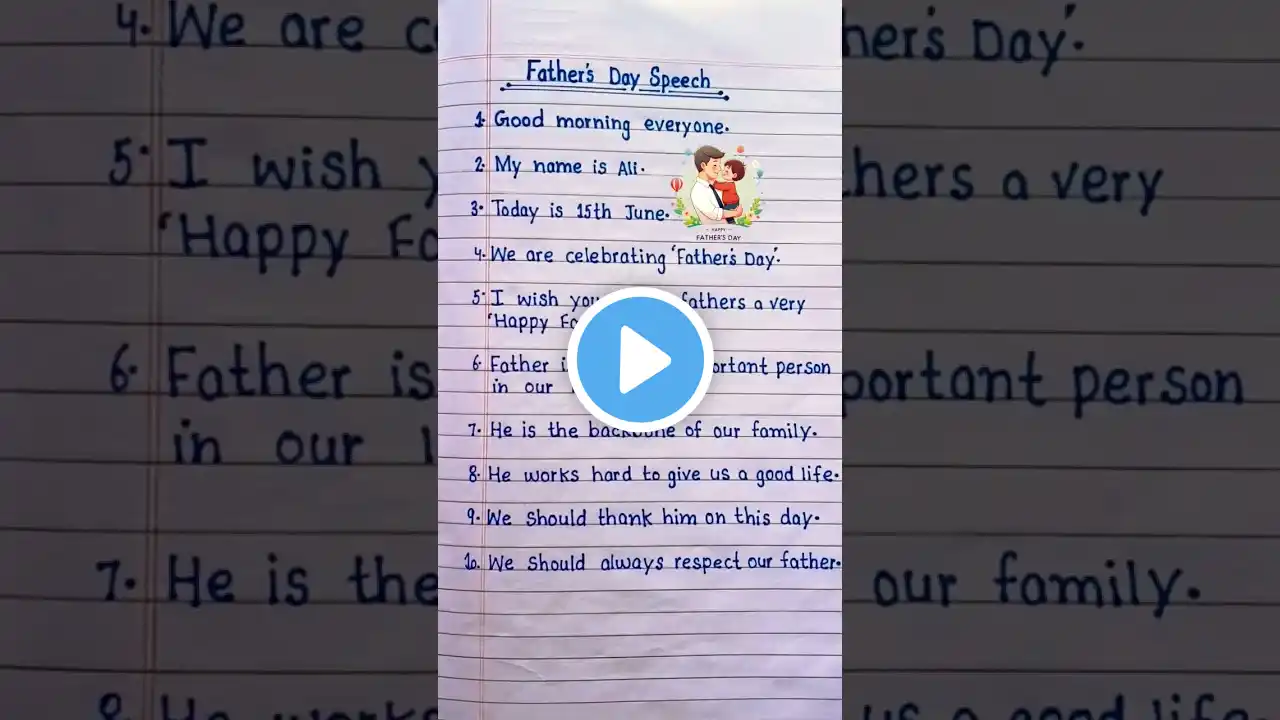 Father's Day Speech
1. Good morning everyone.
2. My name is Ali.
3. Today is 15th June.
HAPPY
FATHER'S DAY
4. We are celebrating 'Father's Day'.
5. I wish you fathers a very
'Happy
6. Father person
in our
7. He is the backbone of our family.
8. He works hard to give us a good life.
9. We should thank him on this day.
10. We should always respect our father.